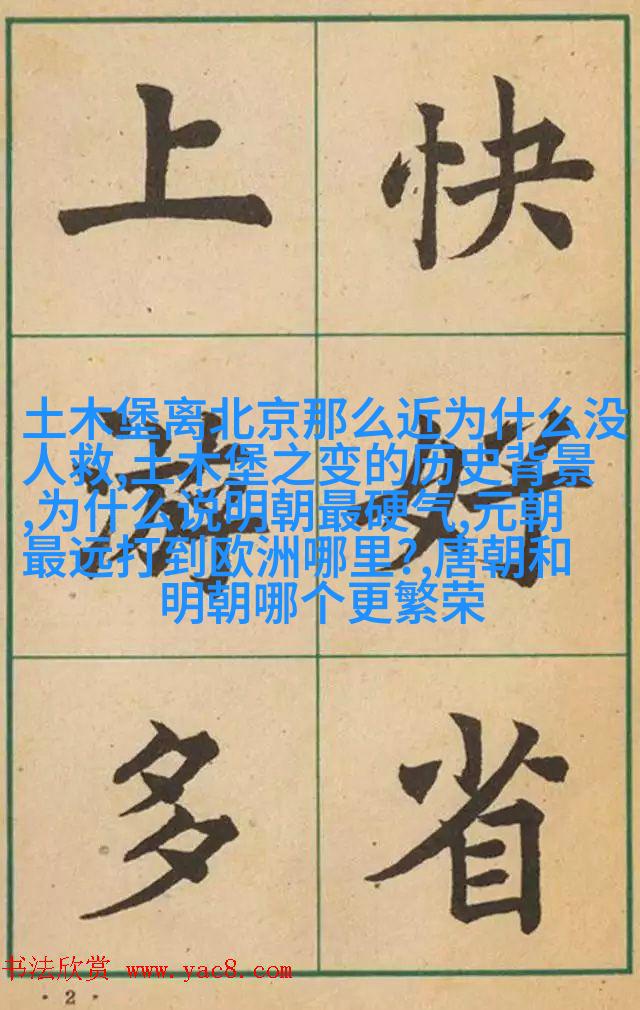 上 快
游 好
土木堡离北京那么近为什么没
人救,土木堡之变的历史背景
,为什么说明朝最硬气,元朝
最远打到欧洲哪里?,唐朝和
明朝哪个更繁荣
多 省
书法欣赏 www.yac8.com
·2·